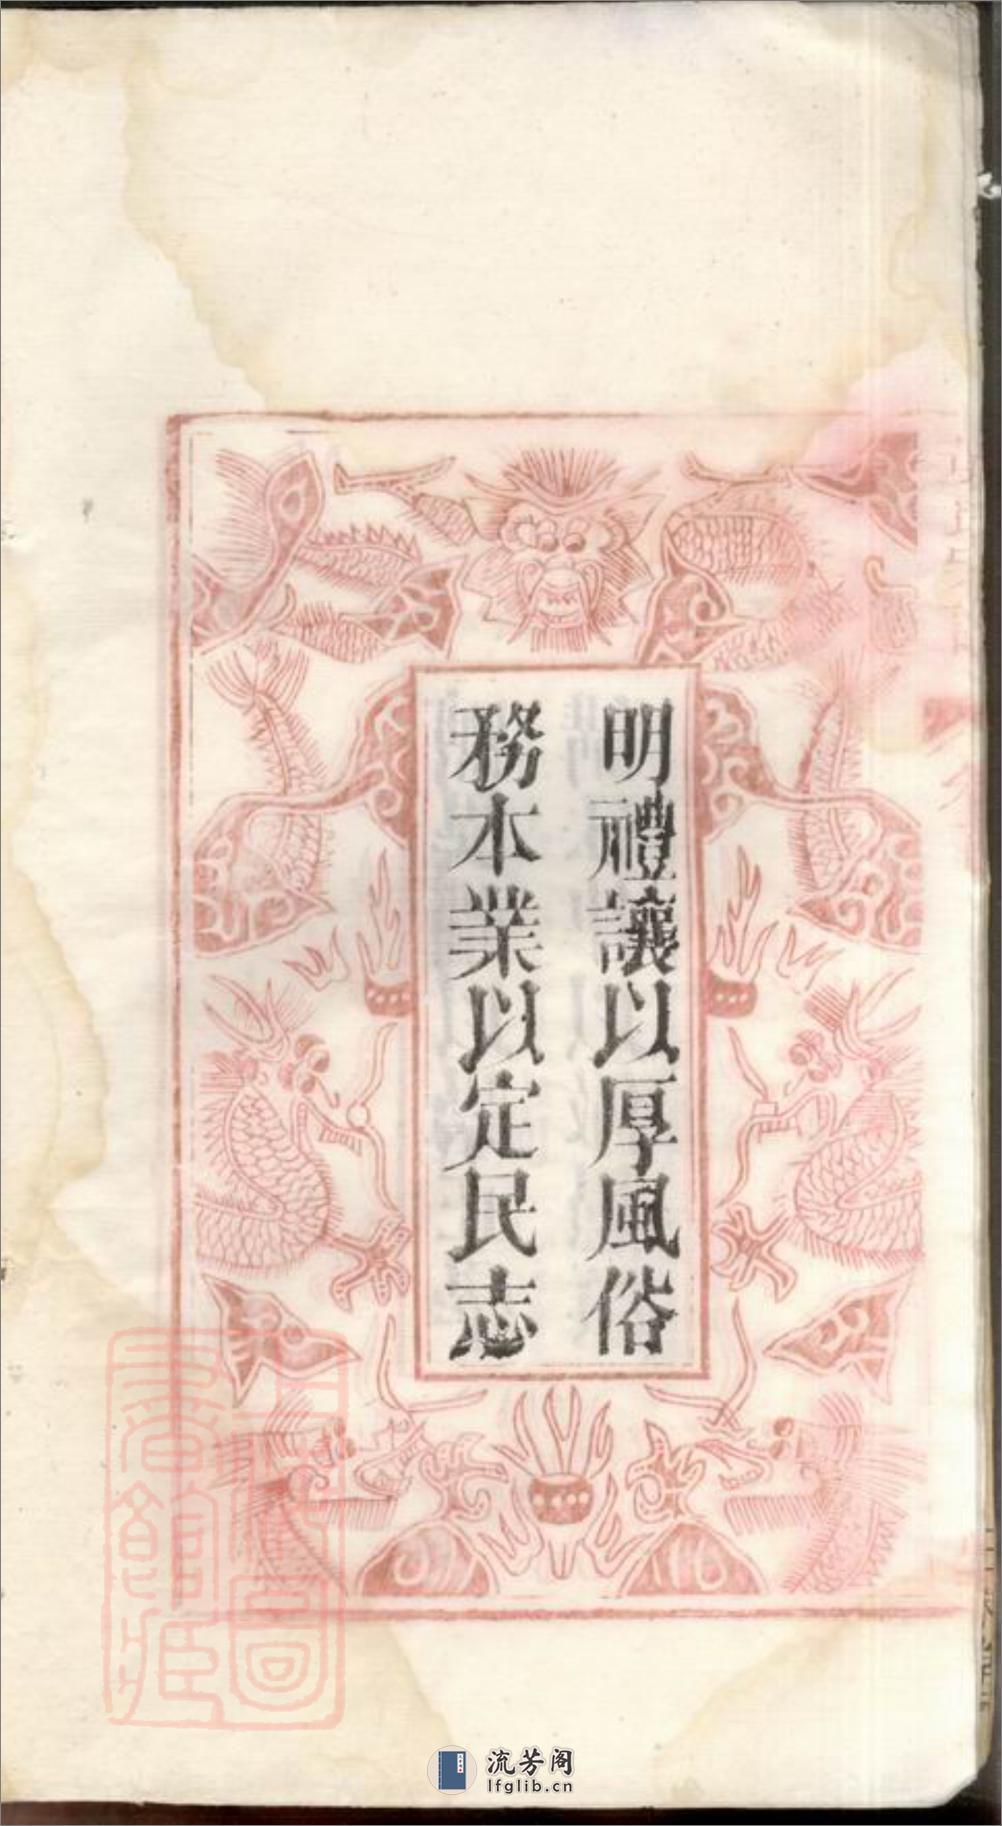 明禮讓以厚風俗
務本業以定民志
流芳阁
lfglib.cn